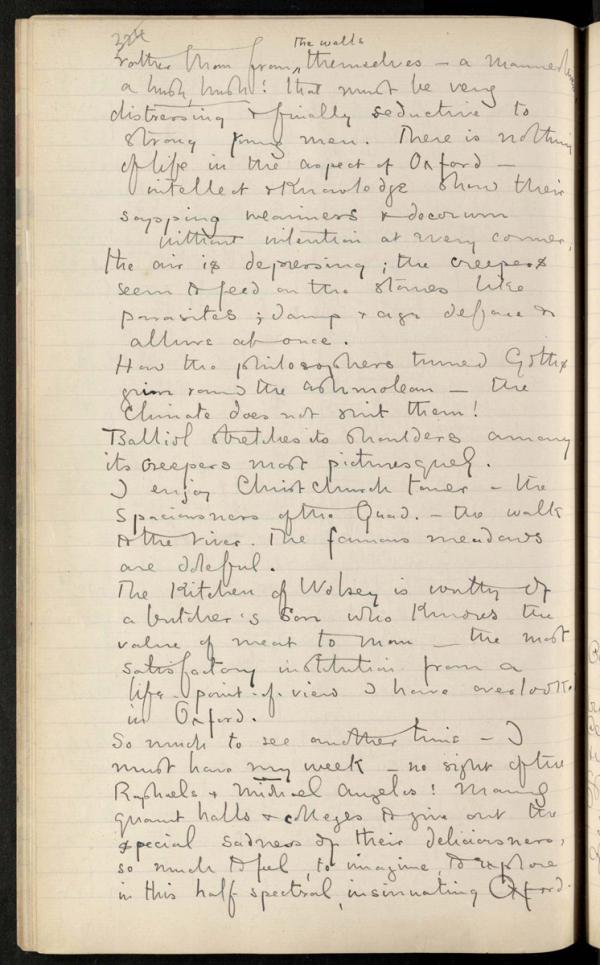 the walls
rather than from themselves – a manner
a hush, hush! that must be very
distressing & finally seductive to
strong young men. There is nothing
of life in the aspect of Oxford –
intellect & Knowledge show their
sapping weariness & decorum
without intention at every corner,
the air is depressing; the creepers
seem to feed on the stones like
parasites; damp & age deface &
allure at once.
How the philosophers turned
grim round the Ashmolean – the
Climate does not suit them!
Balliol stretches its shoulders among
its creepers most picturesquely.
I enjoy Christ Church tower – the
Spaciousness of the Quad. – the walk
to the river. The famous meadows
are doleful.
The Kitchen of Wolsey is worthy of
a butcher's son who Knows the
value of meat to man – the most
satisfactory institution from a
life-point-of-view I have overlooked
in Oxford.
So much to see another time – I
must have my week – no sight of the
Raphaels & Michael Angelos! Many
quaint halls & colleges to give out the
special sadness of their deliciousness,
so much to feel, to imagine, to explore
in this half spectral, insinuating Oxford.